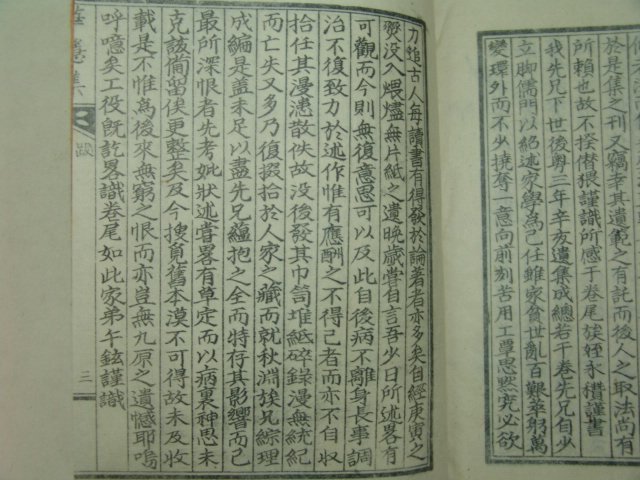 於是集之刊又竊幸其遺範之有託而後人之取法尚有
所賴也故不揆僭猥謹識所感于卷尾族姪永謹書
我先兄下世後粤三年辛亥遺集成總若干卷先兄自少
立脚儒門以紹述家學為己任雖家貧世亂百艱萃躬萬
變環外而不少撓奪一意向前刻苦用工覃思究必欲
力追古人每讀書有得發於論著者亦多矣自經庚寅之
燹沒入煨燼無片紙之遺晚歲嘗自言吾少日所述畧有
可觀而今則無復意思可以及此自後病不離身長事調
治不復致力於述作惟有應酬之不得已者而亦不自収
拾任其漫漶散佚故沒後發其巾笥堆紙碎錄漫無統紀
而亡失又多乃復掇拾於人家之藏而就秋淵族兄綜理
成編是盖未足以盡先兄蘊抱之全而特存其影響而已
最所深恨者先考妣狀述嘗畧有草定而以病裏神思未
克該備留俟更整矣及今搜覓舊本漠不可得故未及收
載是不惟為後來無窮之恨而亦豈無九原之遺憾耶嗚
呼噫矣工役旣訖畧識卷尾如此家弟午鉉謹識
跋
三